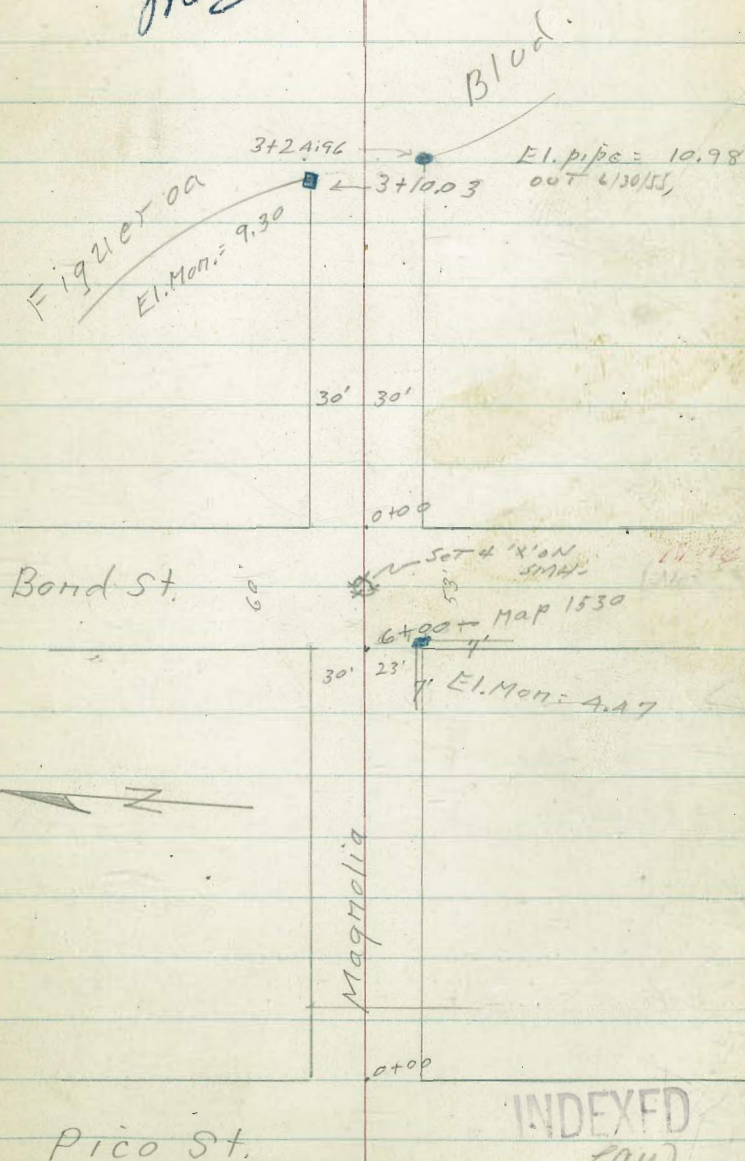 Blvd.
3+24.96
El. pipe = 10.98
OUT 6/30/55,
3+10.03
Figueroa
El. Mon. = 9.30
30' 30'
0+00
SET 4 'X' ON
SMH-
Bond St. 60' 53'
6+00 - Map 1530
7'
30' 23'
7' El. Mon = 4.47
N
Magnolia
0+00
INDEXED
Pico St.